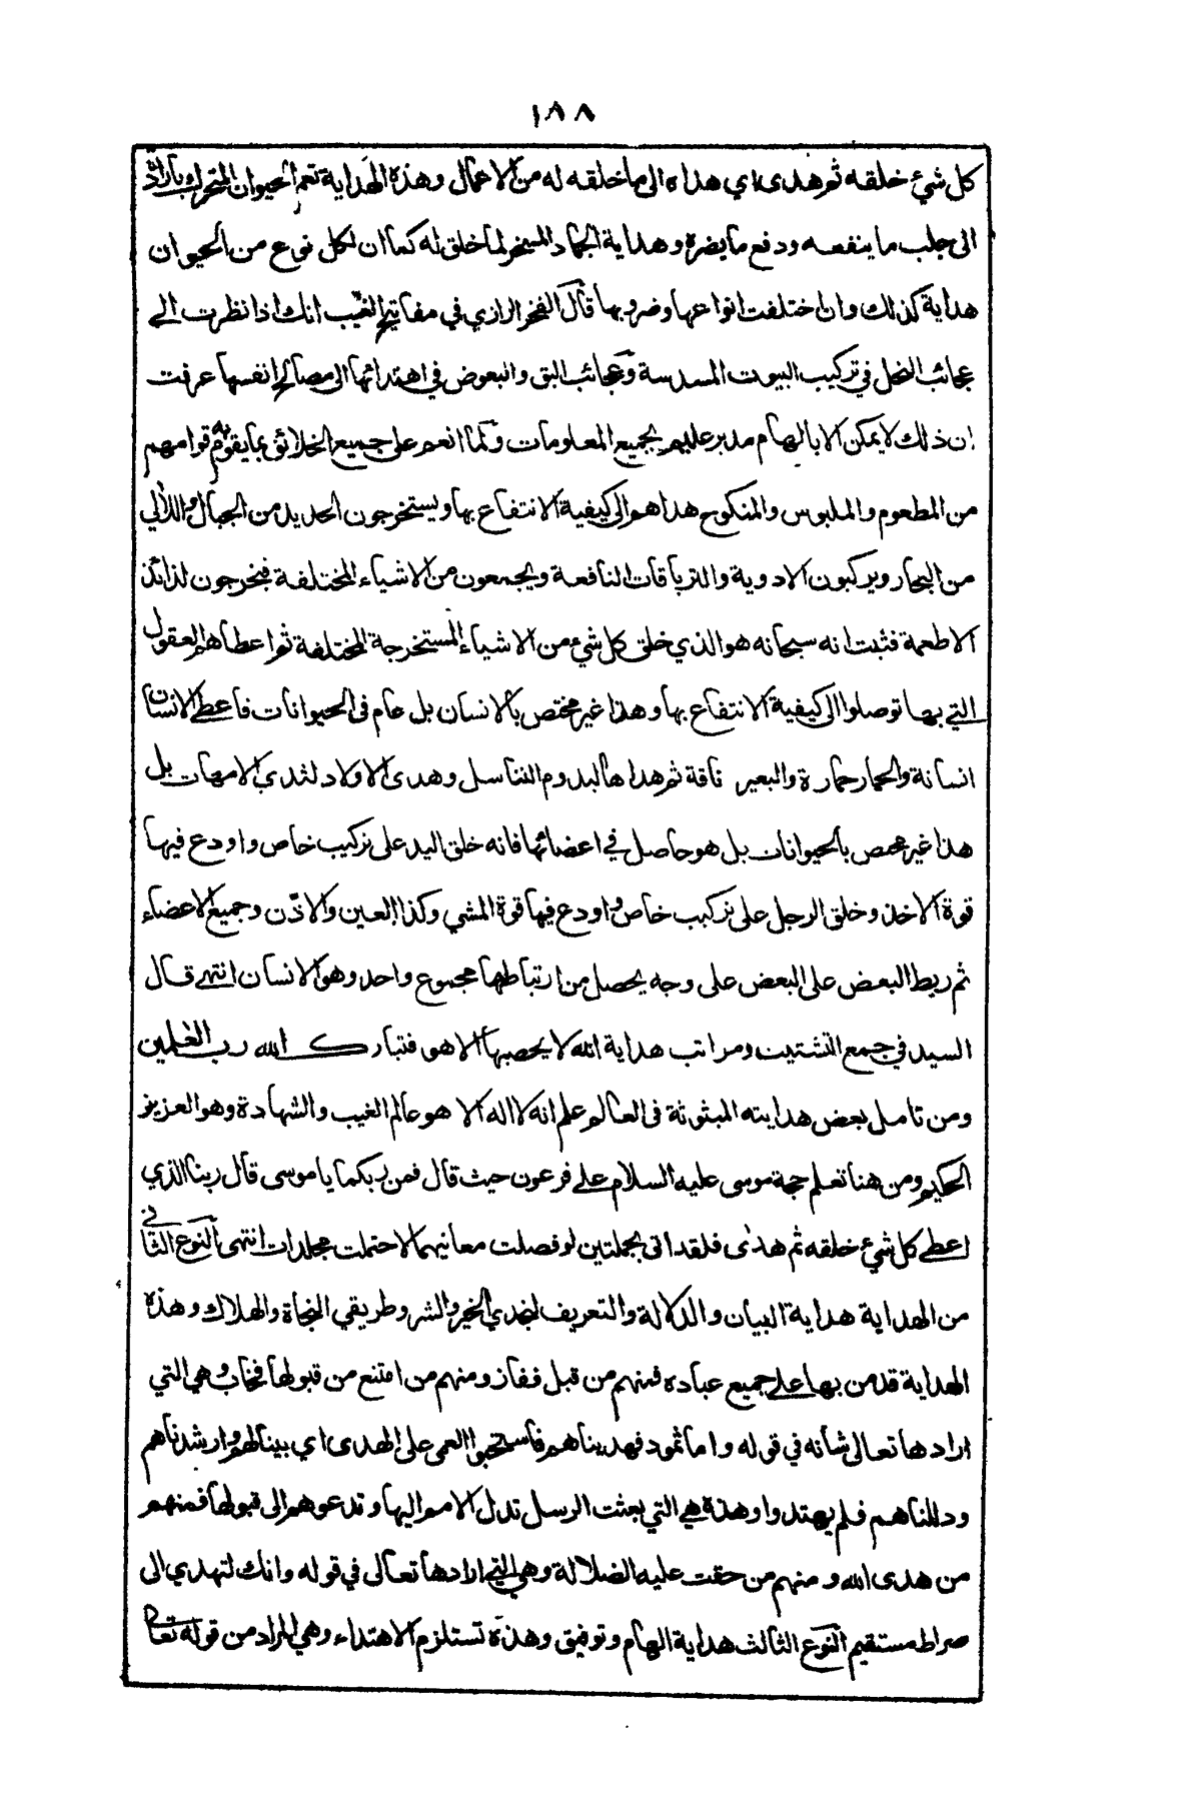 ١٨٨
كل شئ خلقه ثم هدى اي هداه الى ما خلقه له من الاعمال وهذه الهداية تعم الحيوان المتحرك بارادته
الى جلب ما ينفعه ودفع ما يضره وهداية الجماد المسخر لما خلق له كما ان لكل نوع من الحيوان
هداية كذلك وان اختلفت انواعها وضروبها قال الفخر الرازي في مفاتيح الغيب انك اذا نظرت الى
عجائب النحل في تركيب البيوت المسدسة وعجائب البق والبعوض في اهتدائها الى مصالح انفسها عرفت
ان ذلك لا يمكن الا بالهام مدبر عليم بجميع المعلومات وكما انعم على جميع الخلائق بما يقوم به قوامهم
من المطعوم والملبوس والمنكوح هداهم الى كيفية الانتفاع بها ويستخرجون الحديد من الجبال واللآلي
من البحار ويركبون الادوية والترياقات النافعة ويجمعون من الاشياء المختلفة فيخرجون لذائذ
الاطعمة فثبت انه سبحانه هو الذي خلق كل شئ من الاشياء المستخرجة المختلفة ثم اعطاهم العقول
التي بها توصلوا الى كيفية الانتفاع بها وهذا غير مختص بالانسان بل عام في الحيوانات فاعطى الانسان
انسانة والحمار حمارة والبعير ناقة ثم هداها ليدوم التناسل وهدى الاولاد لثدي الامهات بل
هذا غير مختص بالحيوانات بل هو حاصل في اعضائها فانه خلق اليد على تركيب خاص واودع فيها
قوة الاخذ وخلق الرجل على تركيب خاص واودع فيها قوة المشي وكذا العين والاذن وجميع الاعضاء
ثم ربط البعض على البعض على وجه يحصل من ارتباطها مجموع واحد وهو الانسان انتهى قال
السيد في جمع التشتيت ومراتب هداية الله لا يحصيها الا هو فتبارك الله رب العلمين
ومن تامل بعض هدايته المبثوثة في العالم علم انه لا اله الا هو عالم الغيب والشهادة وهو العزيز
الحكيم ومن هنا تعلم حجة موسى عليه السلام على فرعون حيث قال فمن ربكما يا موسى قال ربنا الذي
اعطى كل شئ خلقه ثم هدى فلقد اتى بجملتين لو فصلت معانيهما لاحتملت مجلدات انتهى النوع الثاني
من الهداية هداية البيان والدلالة والتعريف لنجدي الخير والشر وطريقي النجاة والهلاك وهذه
الهداية قد من بها على جميع عباده فمنهم من قبل ففاز ومنهم من امتنع من قبولها فخاب وهي التي
ارادها تعالى شأنه في قوله واما ثمود فهديناهم فاستحبوا العمى على الهدى اي بينا لهم وارشدناهم
ودللناهم فلم يهتدوا وهذه هي التي بعثت الرسل تدل الامم اليها وتدعوهم الى قبولها فمنهم
من هدى الله ومنهم من حقت عليه الضلالة وهي التي ارادها تعالى في قوله وانك لتهدي الى
صراط مستقيم النوع الثالث هداية الهام وتوفيق وهذه تستلزم الاهتداء وهي المراد من قوله تعا